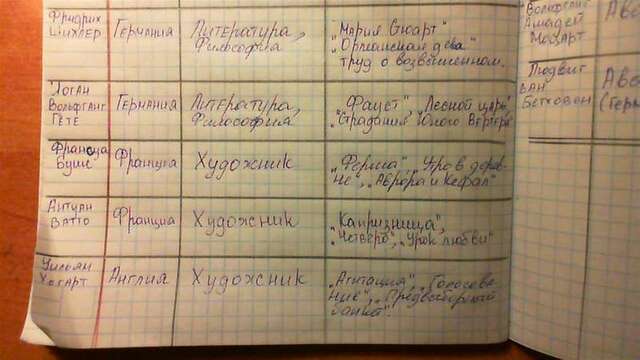 Фридрих
Шиллер
Германия
Литература,
Философия
"Мария Стюарт"
"Орлеанская дева"
труд о возвышенном.
Иоган
Вольфганг
Гёте
Германия
Литература,
Философия
"Фауст", "Лесной царь",
"Страдания Юного Вертера"
Франсуа
Буше
Франция
Художник
"Ферма", "Утро в дерев-
не", "Аврора и Кефал"
Антуан
Ватто
Франция
Художник
"Капризница",
"Четверо", "Урок любви"
Уильям
Хогарт
Англия
Художник
"Агитация", "Голосова-
ние", "Предвыборный
банкет".
Вольфганг
Амадей
Моцарт
Авс
Людвиг
ван
Бетховен